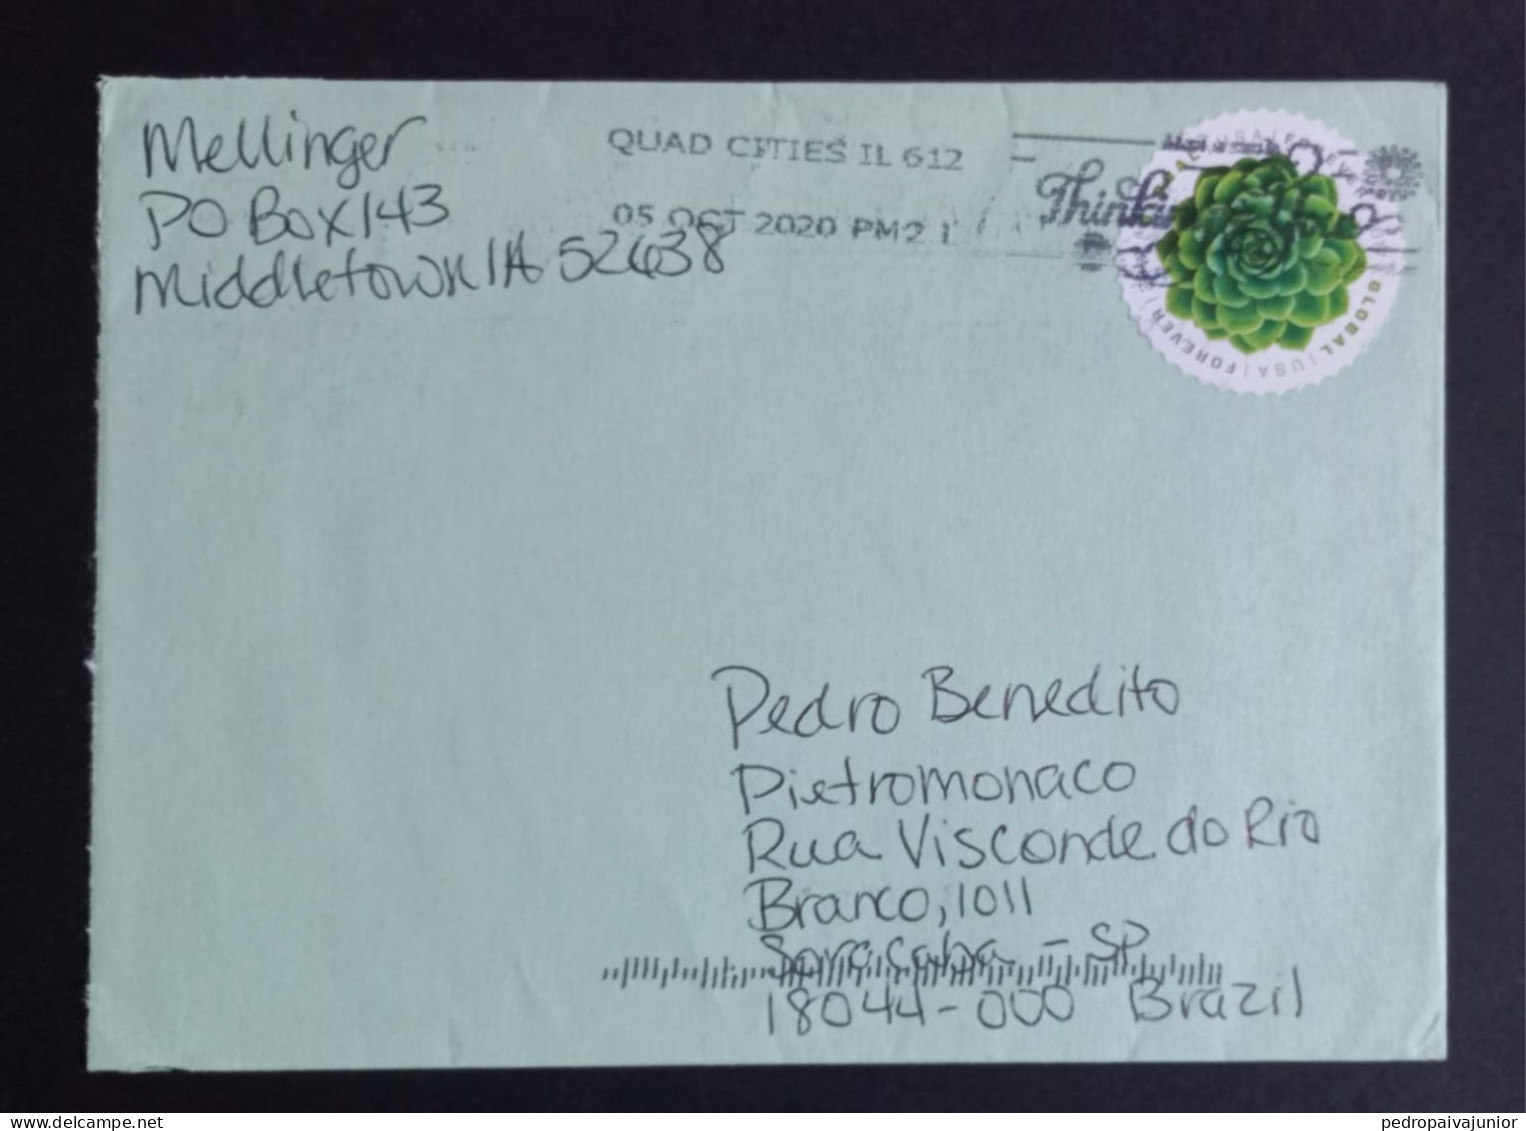 Mellinger
PO Box 143
Middletown IA 52638
QUAD CITIES IL 612
05 OCT 2020 PM 2 L
Thinking
GLOBAL | USA | FOREVER
Pedro Benedito
Pietromonaco
Rua Visconde do Rio
Branco, 1011
Soracaba - SP
18044-000 Brazil
pedropaivajunior